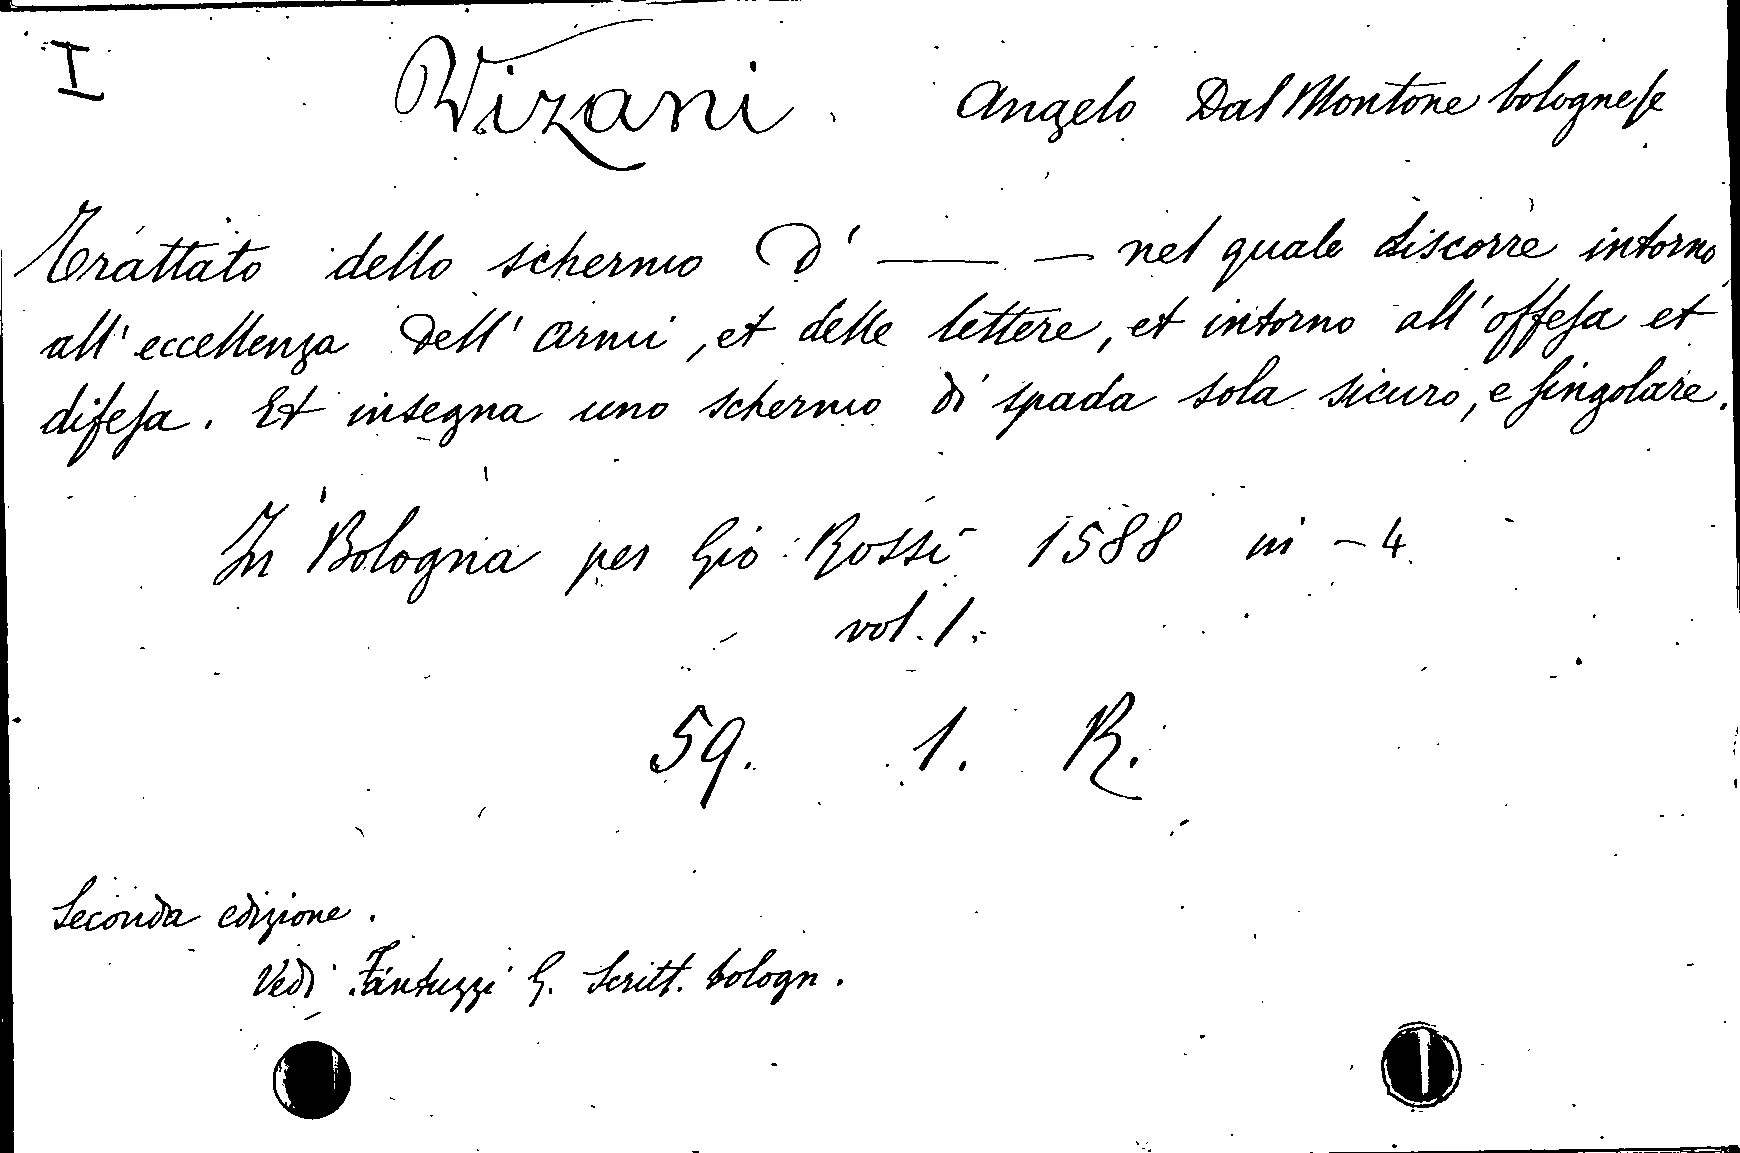 I
Vizani Angelo Dal Montone bolognese
Trattato dello schermo d' —— — nel quale discorre intorno
all'eccellenza dell'armi, et delle lettere, et intorno all'offesa et
difesa. Et insegna uno schermo di spada sola sicuro, e singolare.
In Bologna per Gio: Rossi 1588 in-4
vol. 1.
59. 1. R.
Seconda edizione.
Vedi Fantuzzi G. Scritt. bologn.